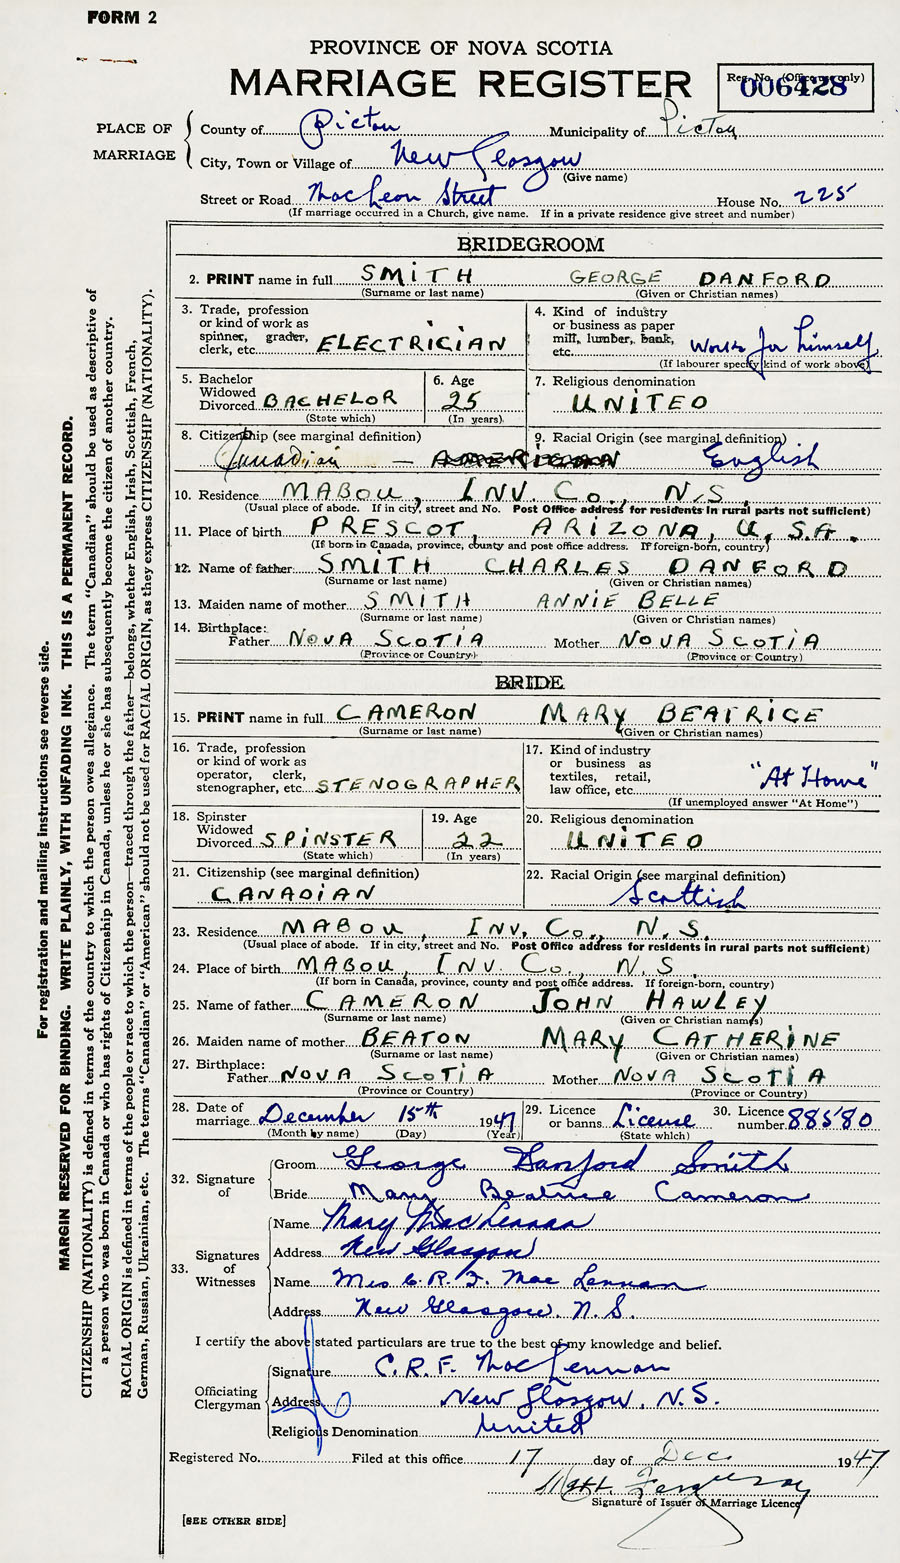 FORM 2
PROVINCE OF NOVA SCOTIA
MARRIAGE REGISTER
Reg. No. (Office use only)
006428
PLACE OF MARRIAGE
County of Pictou Municipality of Pictou
City, Town or Village of New Glasgow
(Give name)
Street or Road MacLeon Street House No. 225
(If marriage occurred in a Church, give name. If in a private residence give street and number)
BRIDEGROOM
2. PRINT name in full SMITH GEORGE DANFORD
(Surname or last name) (Given or Christian names)
3. Trade, profession
or kind of work as
spinner, grader,
clerk, etc. ELECTRICIAN
4. Kind of industry
or business as paper
mill, lumber, bank,
etc. Works for himself
(If labourer specify kind of work above)
5. Bachelor
Widowed
Divorced BACHELOR
(State which)
6. Age
25
(In years)
7. Religious denomination
UNITED
8. Citizenship (see marginal definition)
Canadian —
9. Racial Origin (see marginal definition)
English
10. Residence MABOU, INV. CO., N.S.
(Usual place of abode. If in city, street and No. Post Office address for residents in rural parts not sufficient)
11. Place of birth PRESCOT, ARIZONA, U.S.A.
(If born in Canada, province, county and post office address. If foreign-born, country)
12. Name of father SMITH CHARLES DANFORD
(Surname or last name) (Given or Christian names)
13. Maiden name of mother SMITH ANNIE BELLE
(Surname or last name) (Given or Christian names)
14. Birthplace:
Father NOVA SCOTIA Mother NOVA SCOTIA
(Province or Country) (Province or Country)
BRIDE
15. PRINT name in full CAMERON MARY BEATRICE
(Surname or last name) (Given or Christian names)
16. Trade, profession
or kind of work as
operator, clerk,
stenographer, etc. STENOGRAPHER
17. Kind of industry
or business as
textiles, retail,
law office, etc. "At Home"
(If unemployed answer "At Home")
18. Spinster
Widowed
Divorced SPINSTER
(State which)
19. Age
22
(In years)
20. Religious denomination
UNITED
21. Citizenship (see marginal definition)
CANADIAN
22. Racial Origin (see marginal definition)
Scottish
23. Residence MABOU, INV. CO., N.S.
(Usual place of abode. If in city, street and No. Post Office address for residents in rural parts not sufficient)
24. Place of birth MABOU, INV. CO., N.S.
(If born in Canada, province, county and post office address. If foreign-born, country)
25. Name of father CAMERON JOHN HAWLEY
(Surname or last name) (Given or Christian names)
26. Maiden name of mother BEATON MARY CATHERINE
(Surname or last name) (Given or Christian names)
27. Birthplace:
Father NOVA SCOTIA Mother NOVA SCOTIA
(Province or Country) (Province or Country)
28. Date of
marriage December 15th 1947
(Month by name) (Day) (Year)
29. Licence
or banns License
(State which)
30. Licence
number 88580
32. Signature
of
Groom George Danford Smith
Bride Mary Beatrice Cameron
33. Signatures
of
Witnesses
Name Mary MacLennan
Address New Glasgow
Name Mrs C. R. F. MacLennan
Address New Glasgow. N.S.
I certify the above stated particulars are true to the best of my knowledge and belief.
Officiating
Clergyman
Signature C.R.F. MacLennan
Address New Glasgow, N.S.
Religious Denomination United
Registered No. Filed at this office 17 day of Dec. 1947
Ferguson
Signature of Issuer of Marriage Licence
[SEE OTHER SIDE]
For registration and mailing instructions see reverse side.
MARGIN RESERVED FOR BINDING. WRITE PLAINLY, WITH UNFADING INK. THIS IS A PERMANENT RECORD.
CITIZENSHIP (NATIONALITY) is defined in terms of the country to which the person owes allegiance. The term "Canadian" should be used as descriptive of
a person who was born in Canada or who has rights of Citizenship in Canada, unless he or she has subsequently become the citizen of another country.
RACIAL ORIGIN is defined in terms of the people or race to which the person—traced through the father—belongs, whether English, Irish, Scottish, French,
German, Russian, Ukrainian, etc. The terms "Canadian" or "American" should not be used for RACIAL ORIGIN, as they express CITIZENSHIP (NATIONALITY).